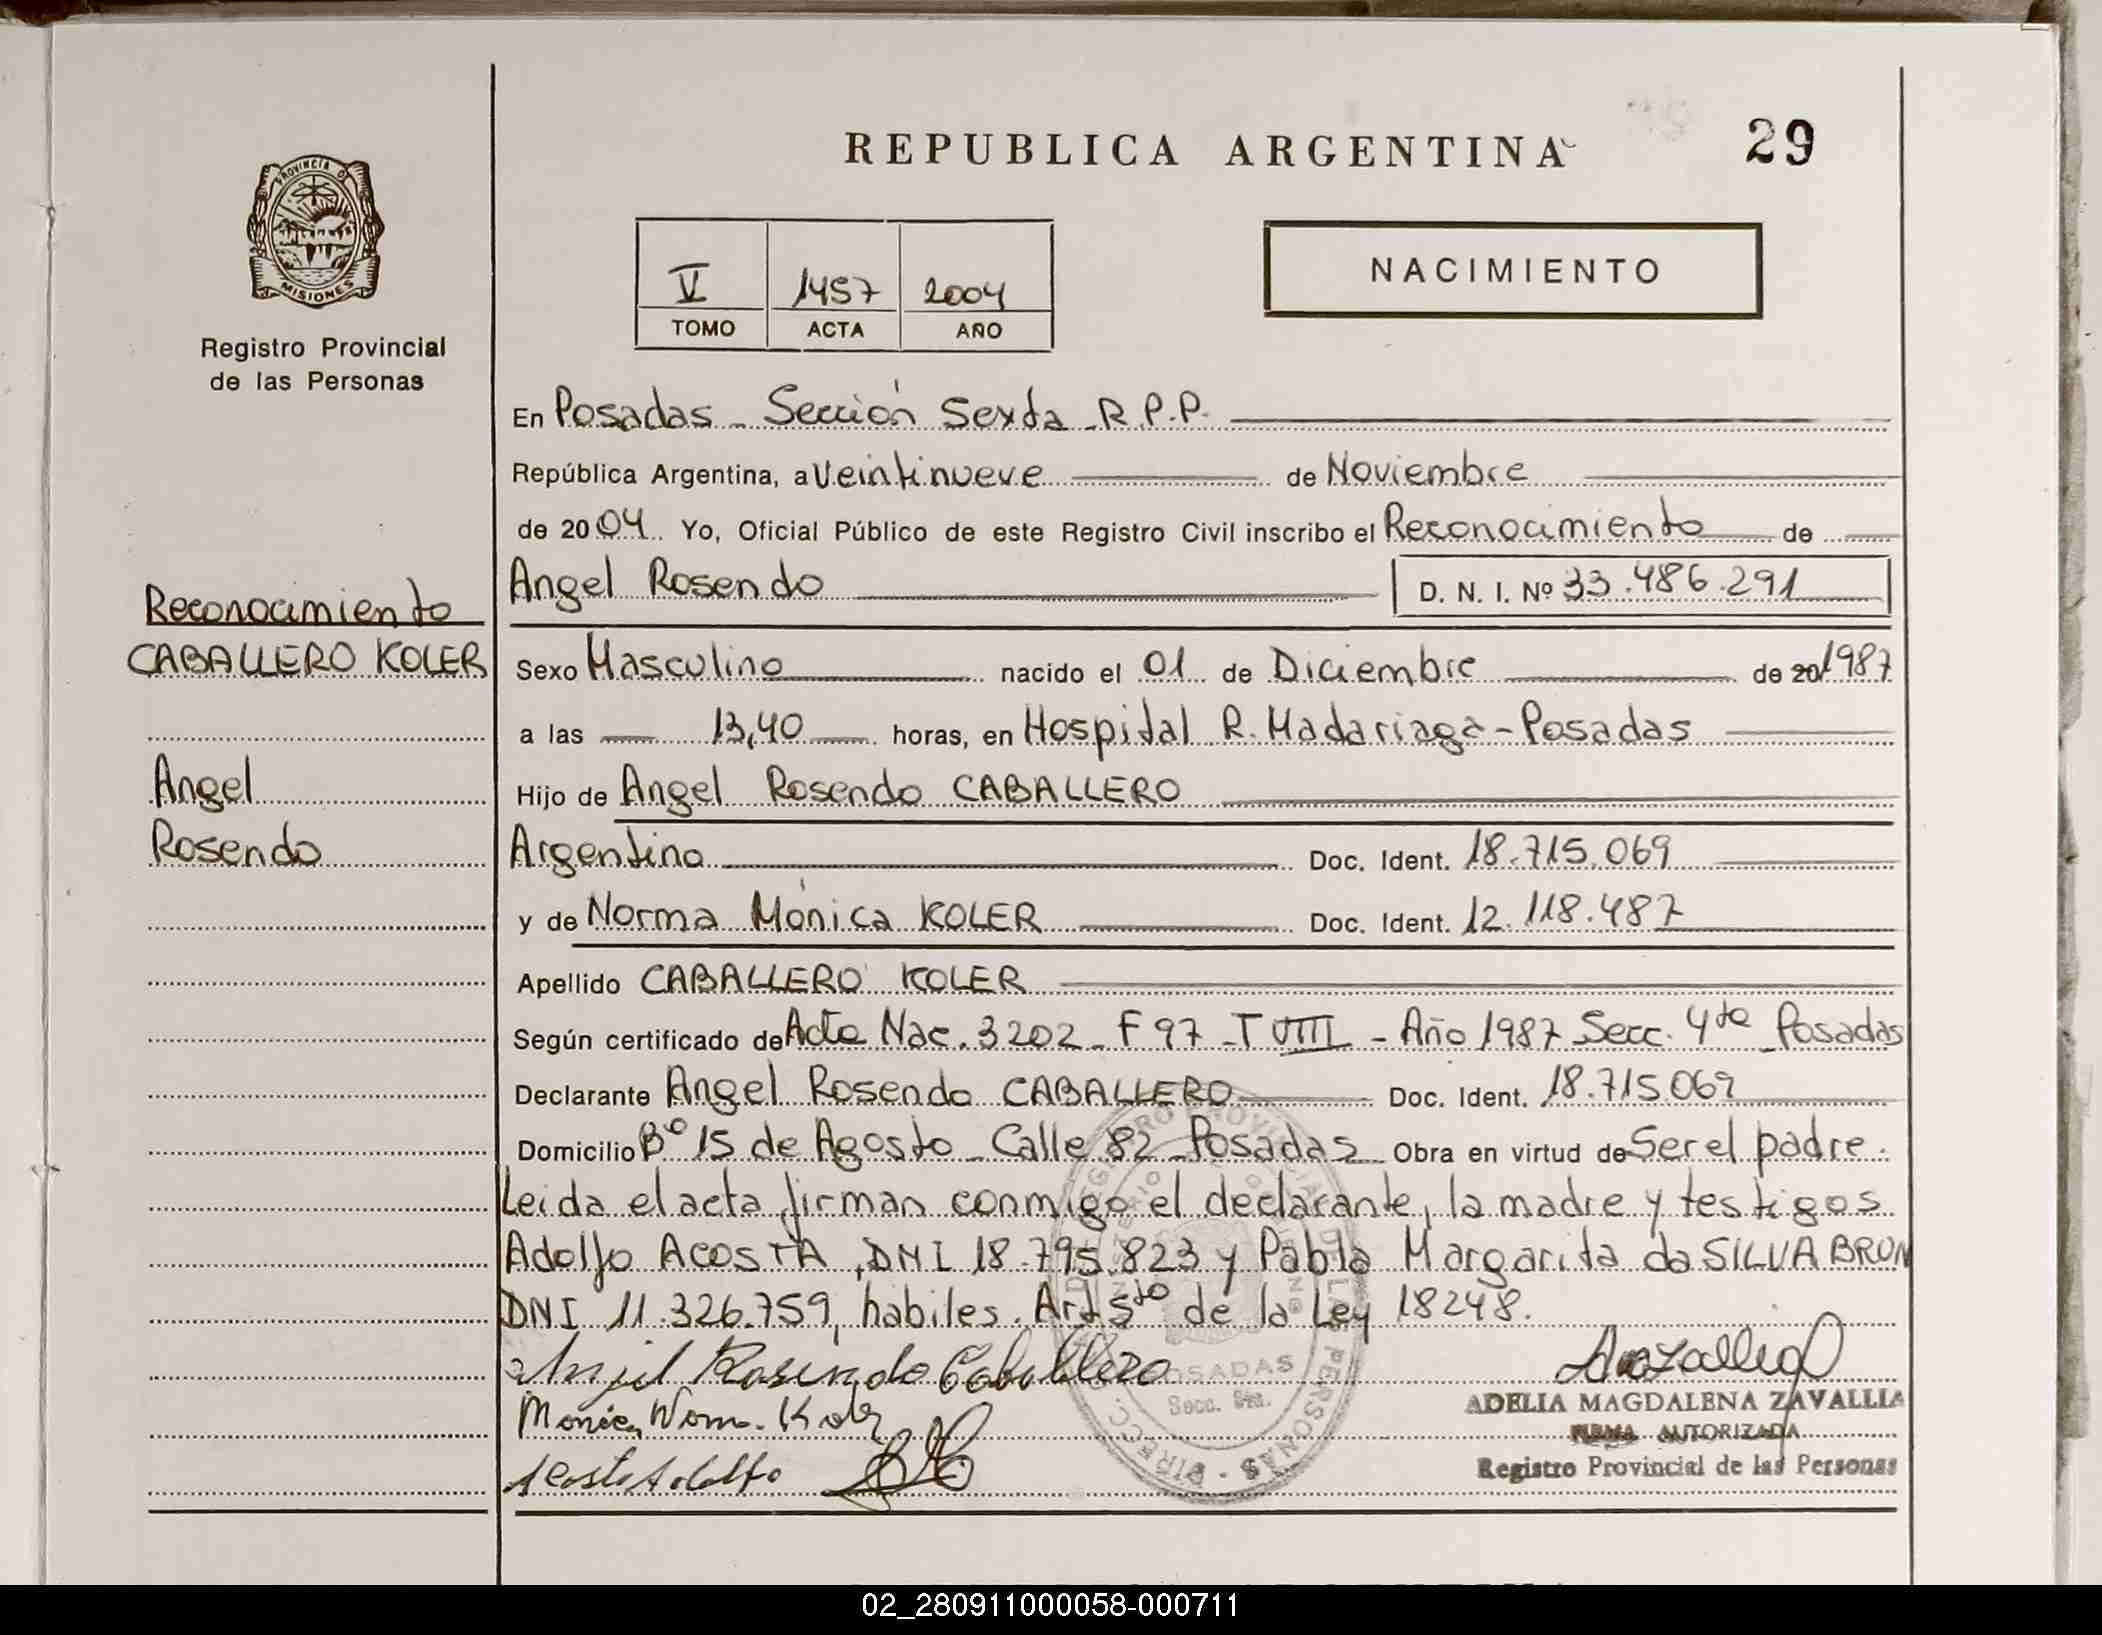 REPUBLICA ARGENTINA
29
PROVINCIA D
MISIONES
Registro Provincial
de las Personas
V 1457 2004
TOMO ACTA AÑO
NACIMIENTO
En Posadas - Sección Sexta - R.P.P.
República Argentina, a Veintinueve de Noviembre
de 2004. Yo, Oficial Público de este Registro Civil inscribo el Reconocimiento de
Angel Rosendo D. N. I. Nº 33.486.291
Reconocimiento
CABALLERO KOLER
Angel
Rosendo
Sexo Masculino nacido el 01 de Diciembre de 20 1987
a las 13,40 horas, en Hospital R. Madariaga - Posadas
Hijo de Angel Rosendo CABALLERO
Argentino Doc. Ident. 18.715.069
y de Norma Mónica KOLER Doc. Ident. 12.118.487
Apellido CABALLERO KOLER
Según certificado de Acta Nac. 3202 - F 97 - T VIII - Año 1987 Secc. 4ta Posadas
Declarante Angel Rosendo CABALLERO Doc. Ident. 18.715.069
Domicilio Bº 15 de Agosto - Calle 82 - Posadas Obra en virtud de Ser el padre.
Leida el acta firman conmigo el declarante, la madre y testigos
Adolfo ACOSTA, DNI 18.795.823 y Pabla Margarita da SILVA BRUN
DNI 11.326.759, habiles. Art 5to de la Ley 18248.
Angel Rosendo Caballero
Acosta Adolfo
ADELIA MAGDALENA ZAVALLIA
FIRMA AUTORIZADA
Registro Provincial de las Personas
DIRECC. REGISTRO PROVINCIAL DE LAS PERSONAS
POSADAS
02_280911000058-000711